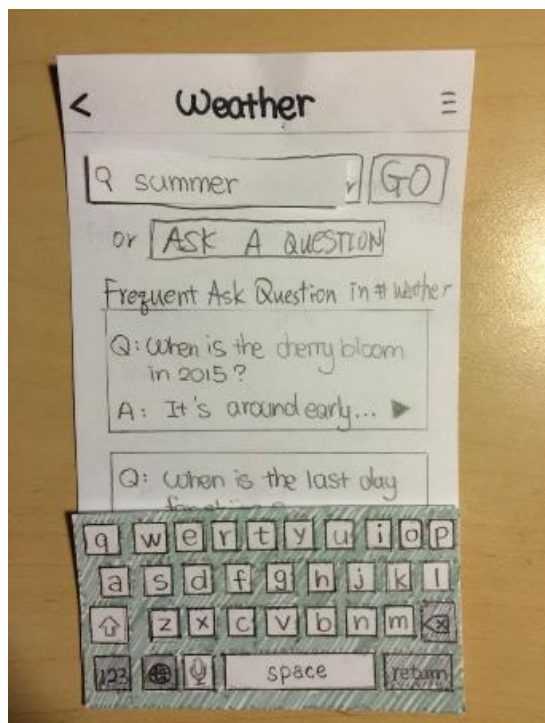 < Weather
summer GO
or ASK A QUESTION
Frequent Ask Question in # weather
Q: When is the cherry bloom
in 2015?
A: It's around early...
Q: When is the last day
q w e r t y u i o p
a s d f g h j k l
z x c v b n m
123 space return